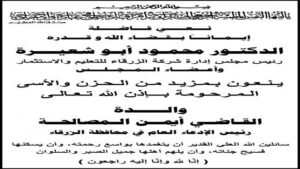 بسم الله الرحمن الرحيم
نعي فاضلة
إيمانا بقضاء الله وقدره
الدكتور محمود أبو شعيرة
رئيس مجلس إدارة شركة الزرقاء للتعليم والاستثمار
وأعضاء المجلس
ينعون بمزيد من الحزن والأسى
المرحومة بإذن الله تعالى
والدة
القاضي أيمن المصالحة
رئيس الإدعاء العام في محافظة الزرقاء
سائلين الله العلي القدير أن يتغمدها بواسع رحمته، وأن يسكنها
فسيح جناته، وأن يلهم أهلها جميل الصبر والسلوان
( إنا لله وإنا إليه راجعون )